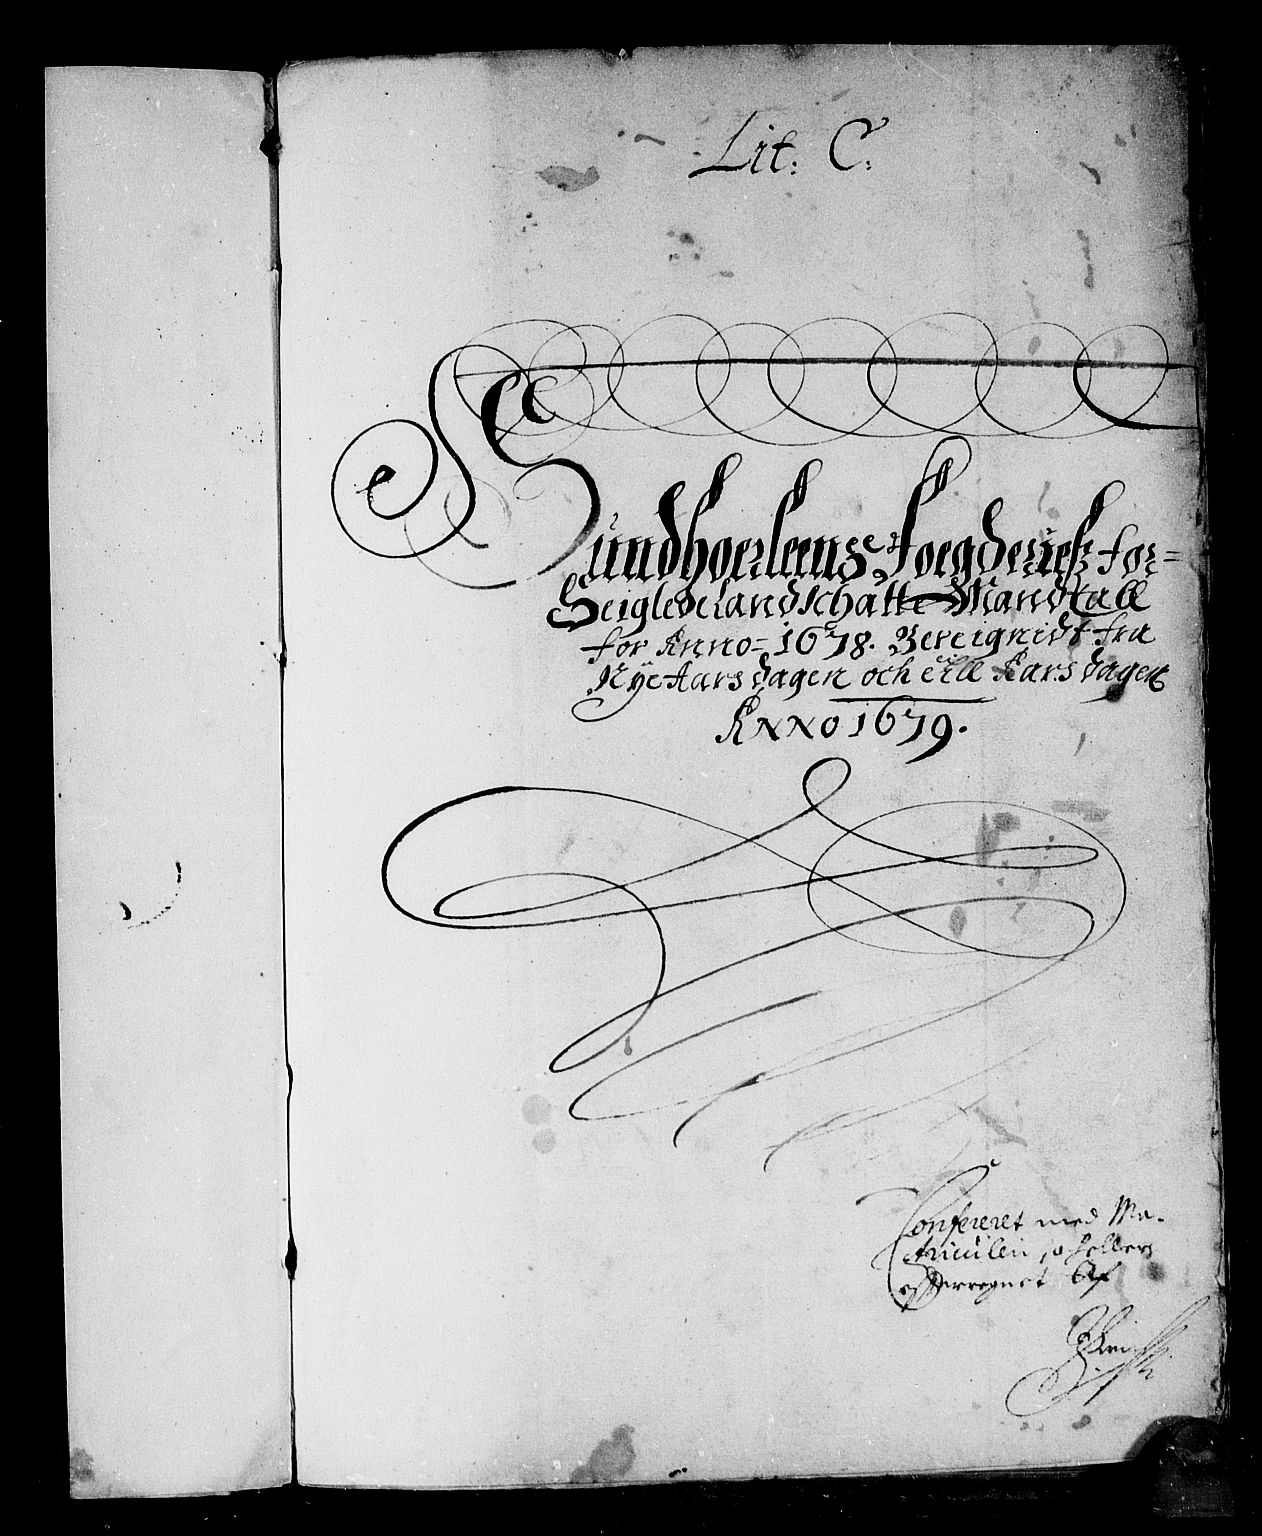 Lit: C:
Sundhoerleens Foegderies for=
Seiglede Landschatte Mandtall
for Anno= 1678. Bereignidt fra
Nye Aars dagen och till Aarsdagen
Anno 1679.
Confereret med Ma-
triculen, sa hellers
efterregnet Af